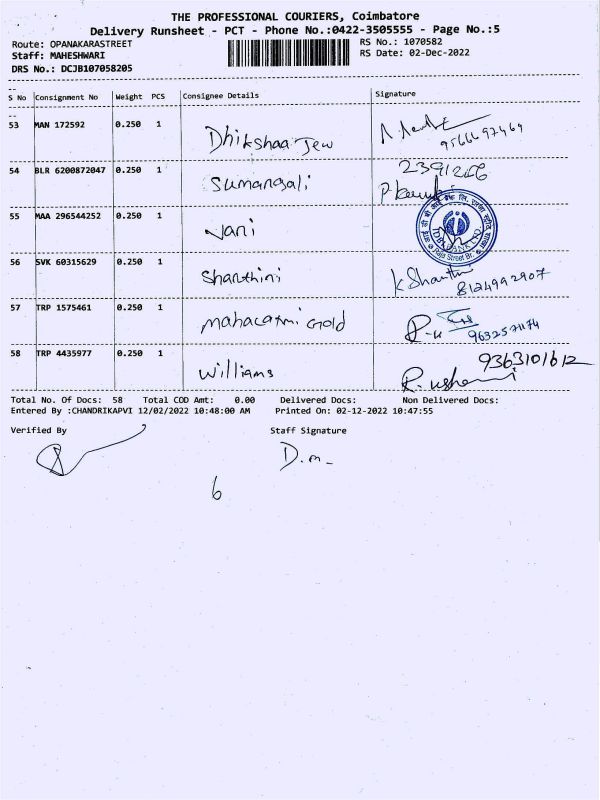 THE PROFESSIONAL COURIERS, Coimbatore
Delivery Runsheet - PCT - Phone No.:0422-3505555 - Page No.:5
Route: OPANAKARASTREET RS No.: 1070582
Staff: MAHESHWARI RS Date: 02-Dec-2022
DRS No.: DCJB107058205
S No Consignment No Weight PCS Consignee Details Signature
53 MAN 172592 0.250 1 Dhikshaa Jew
9566697469
54 BLR 6200872047 0.250 1 Sumangali 2391256
55 MAA 296544252 0.250 1 Jani
IDBI BANK LTD.
Raja Street Br.
56 SVK 60315629 0.250 1 Shanthini K Shanthi
8124992907
57 TRP 1575461 0.250 1 Mahalaxmi Gold
58 TRP 4435977 0.250 1 Williams 9363101612
Total No. Of Docs: 58 Total COD Amt: 0.00 Delivered Docs: Non Delivered Docs:
Entered By :CHANDRIKAPVI 12/02/2022 10:48:00 AM Printed On: 02-12-2022 10:47:55
Verified By Staff Signature
D.m.
6